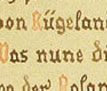 von Rügeland
Was nune di
von der Roland